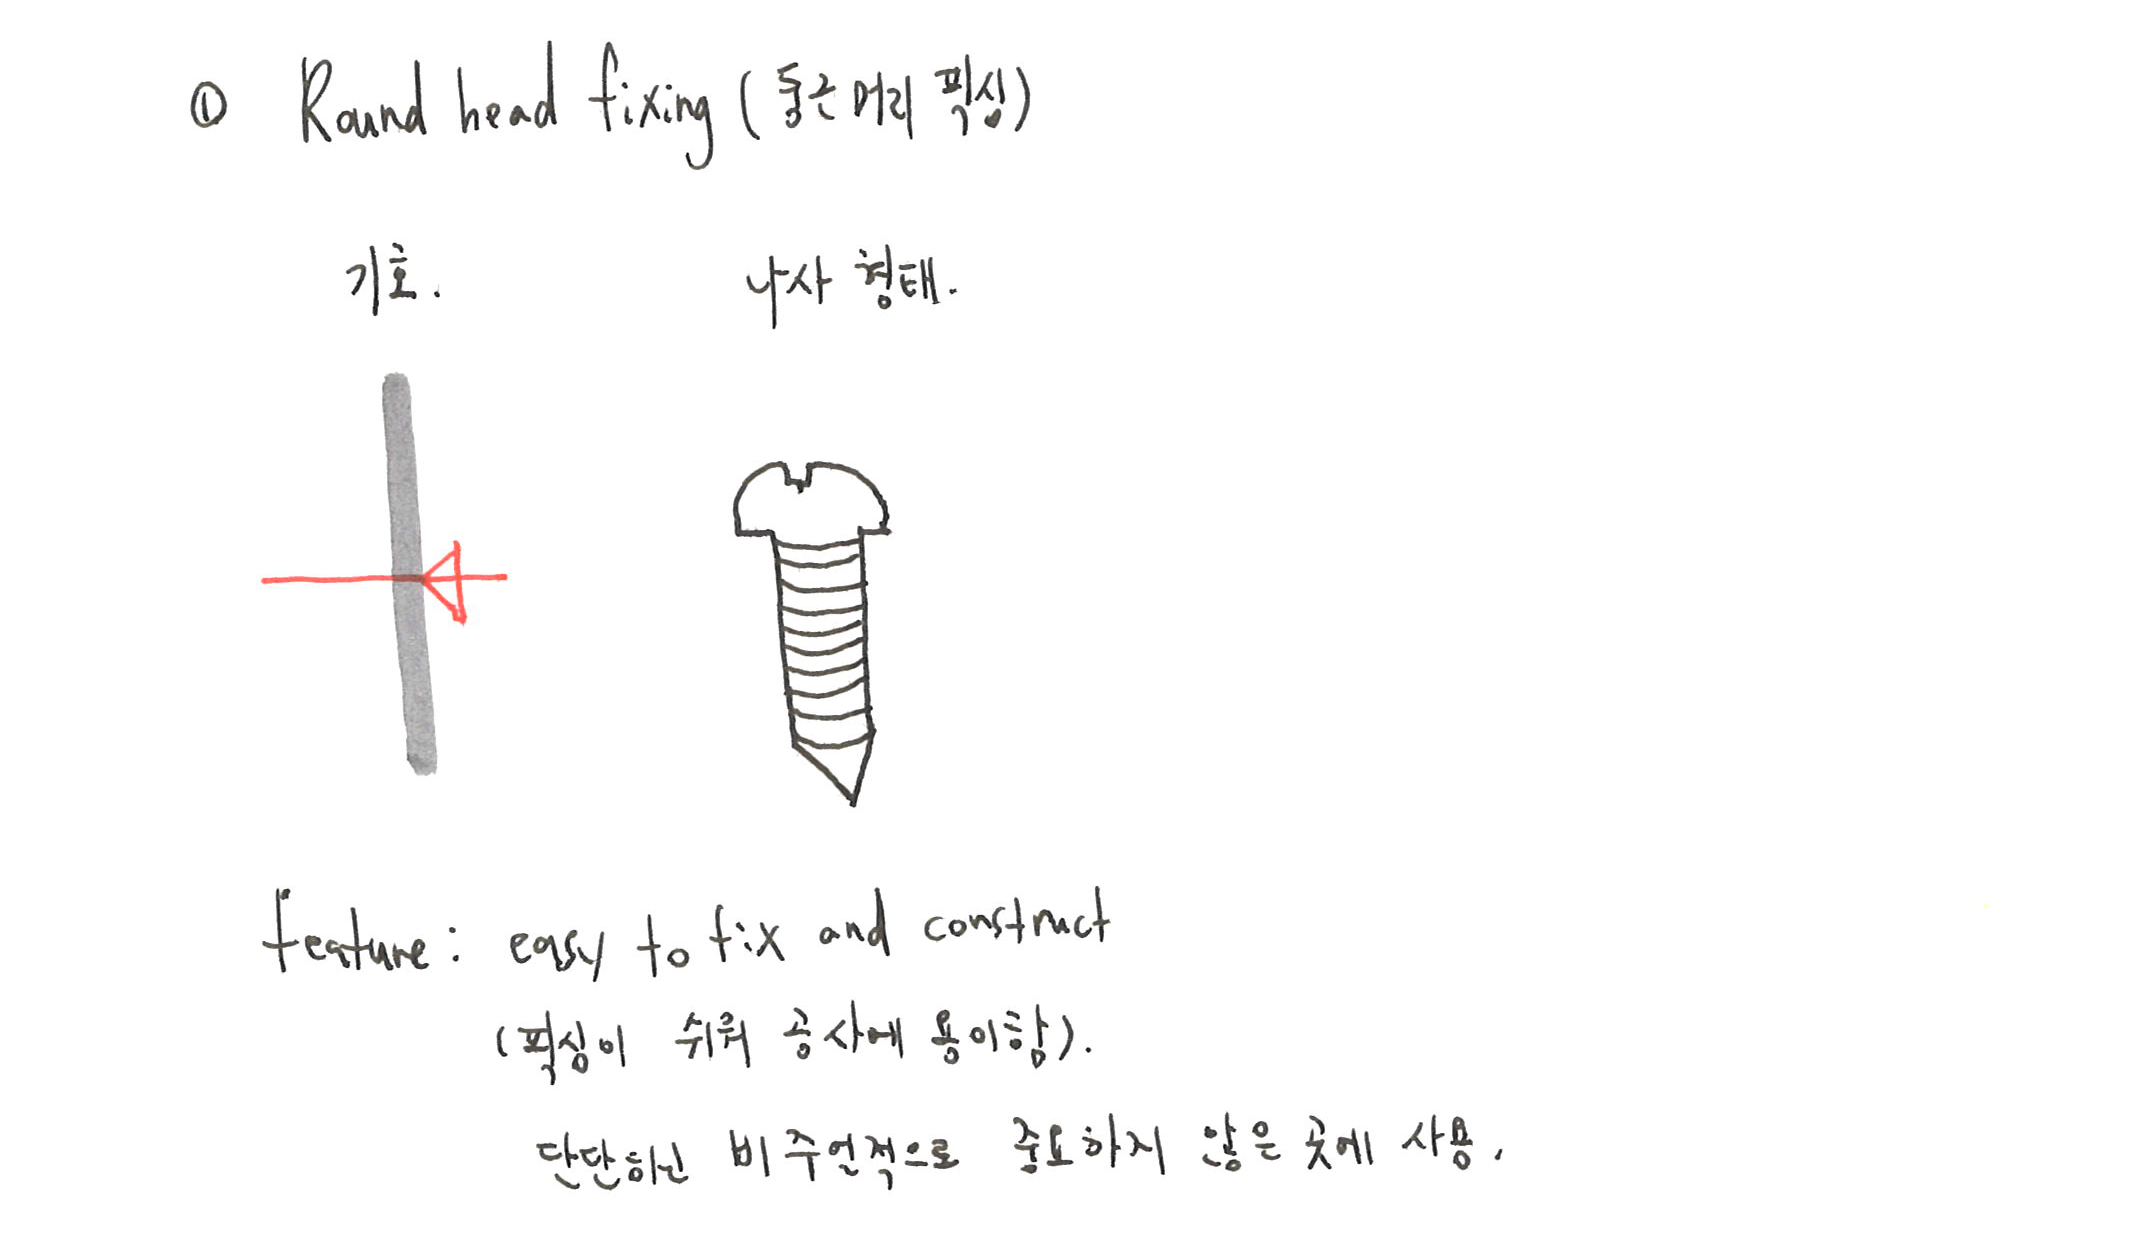 ① Round head fixing (둥근머리 픽싱)
기호. 나사 형태.
feature: easy to fix and construct
(픽싱이 쉬워 공사에 용이함).
단단하닌 비주얼적으로 중요하지 않은 곳에 사용.